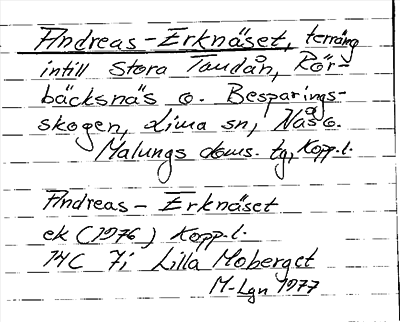 Andreas-Erknäset, terräng
intill Stora Tandån, Rör-
bäcksnäs o. Besparings-
skogen, Lima sn, Nås o.
Malungs doms. tg, Kopp.l.
Andreas-Erknäset
ek (1976) Kopp.l.
14C 7i Lilla Moberget
M-Lgn 1977